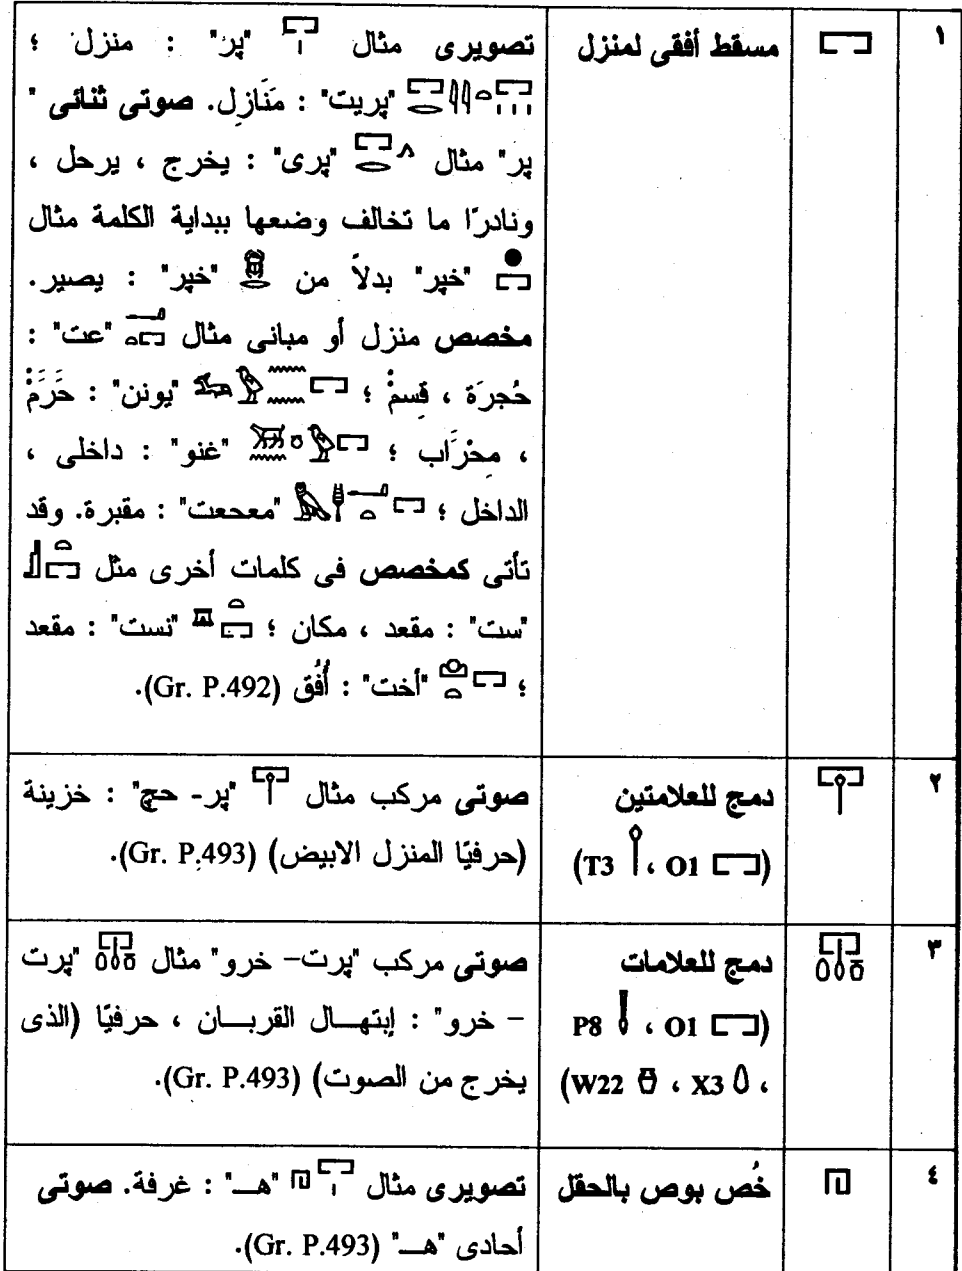 ١ مسقط أفقى لمنزل تصويرى مثال "پر" : منزل ؛
"پريت" : مَنَازِل. صوتى ثنائى "
پر" مثال "پرى" : يخرج ، يرحل ،
ونادرًا ما تخالف وضعها ببداية الكلمة مثال
"خپر" بدلاً من "خپر" : يصير.
مخصص منزل أو مبانى مثال "عت" :
حُجرَة ، قِسمْ ؛ "يونن" : حَرَمْ
، مِحْرَاب ؛ "غنو" : داخلى ،
الداخل ؛ "معحعت" : مقبرة. وقد
تأتى كمخصص فى كلمات أخرى مثل
"ست" : مقعد ، مكان ؛ "نست" : مقعد
؛ "أخت" : أُفُق (Gr. P.492).
٢ دمج للعلامتين صوتى مركب مثال "پر- حچ" : خزينة
(O1 ، T3) (حرفيًا المنزل الابيض) (Gr. P.493).
٣ دمج للعلامات صوتى مركب "پرت– خرو" مثال "پرت
(O1 ، P8 – خرو" : إبتهـــال القربـــان ، حرفيًا (الذى
، X3 ، W22) يخرج من الصوت) (Gr. P.493).
٤ خُص بوص بالحقل تصويرى مثال "هـــ" : غرفة. صوتى
أحادى "هـــ" (Gr. P.493).